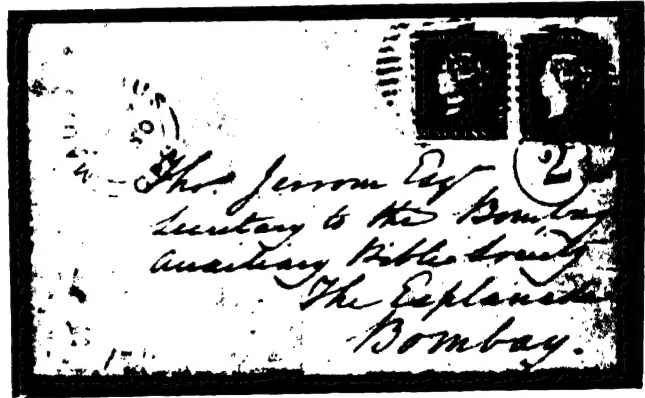 2
Tho.s Jerrom Esq.r
Secretary to the Bombay
Auxiliary Bible Society
The Esplanade
Bombay.